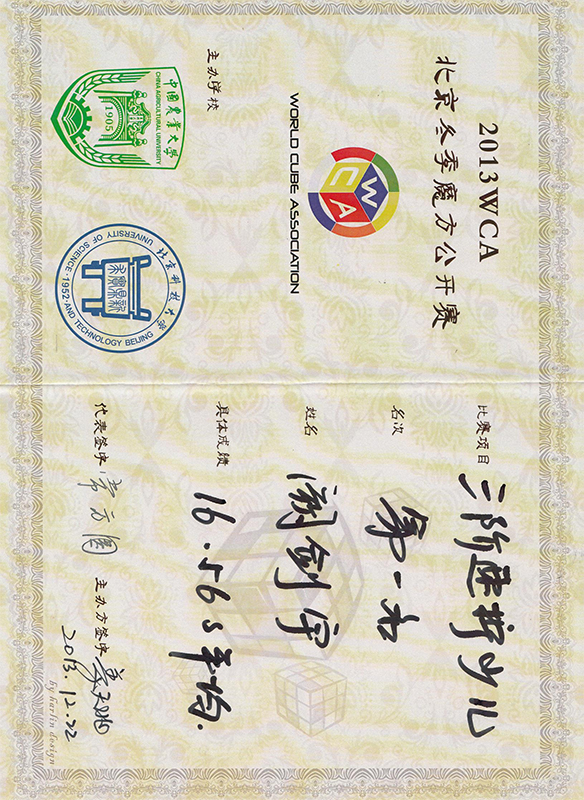 2013WCA
北京冬季魔方公开赛
WCA
WORLD CUBE ASSOCIATION
主办学校
中国农业大学
CHINA AGRICULTURAL UNIVERSITY
1905
北京科技大学
UNIVERSITY OF SCIENCE·1952·AND TECHNOLOGY BEIJING
比赛项目 三阶速拧少儿
名次 第一名
姓名 剑宇
具体成绩 16.56s平均.
代表签字: 常方圆 主办方签字
2013.12.22
by harlin design